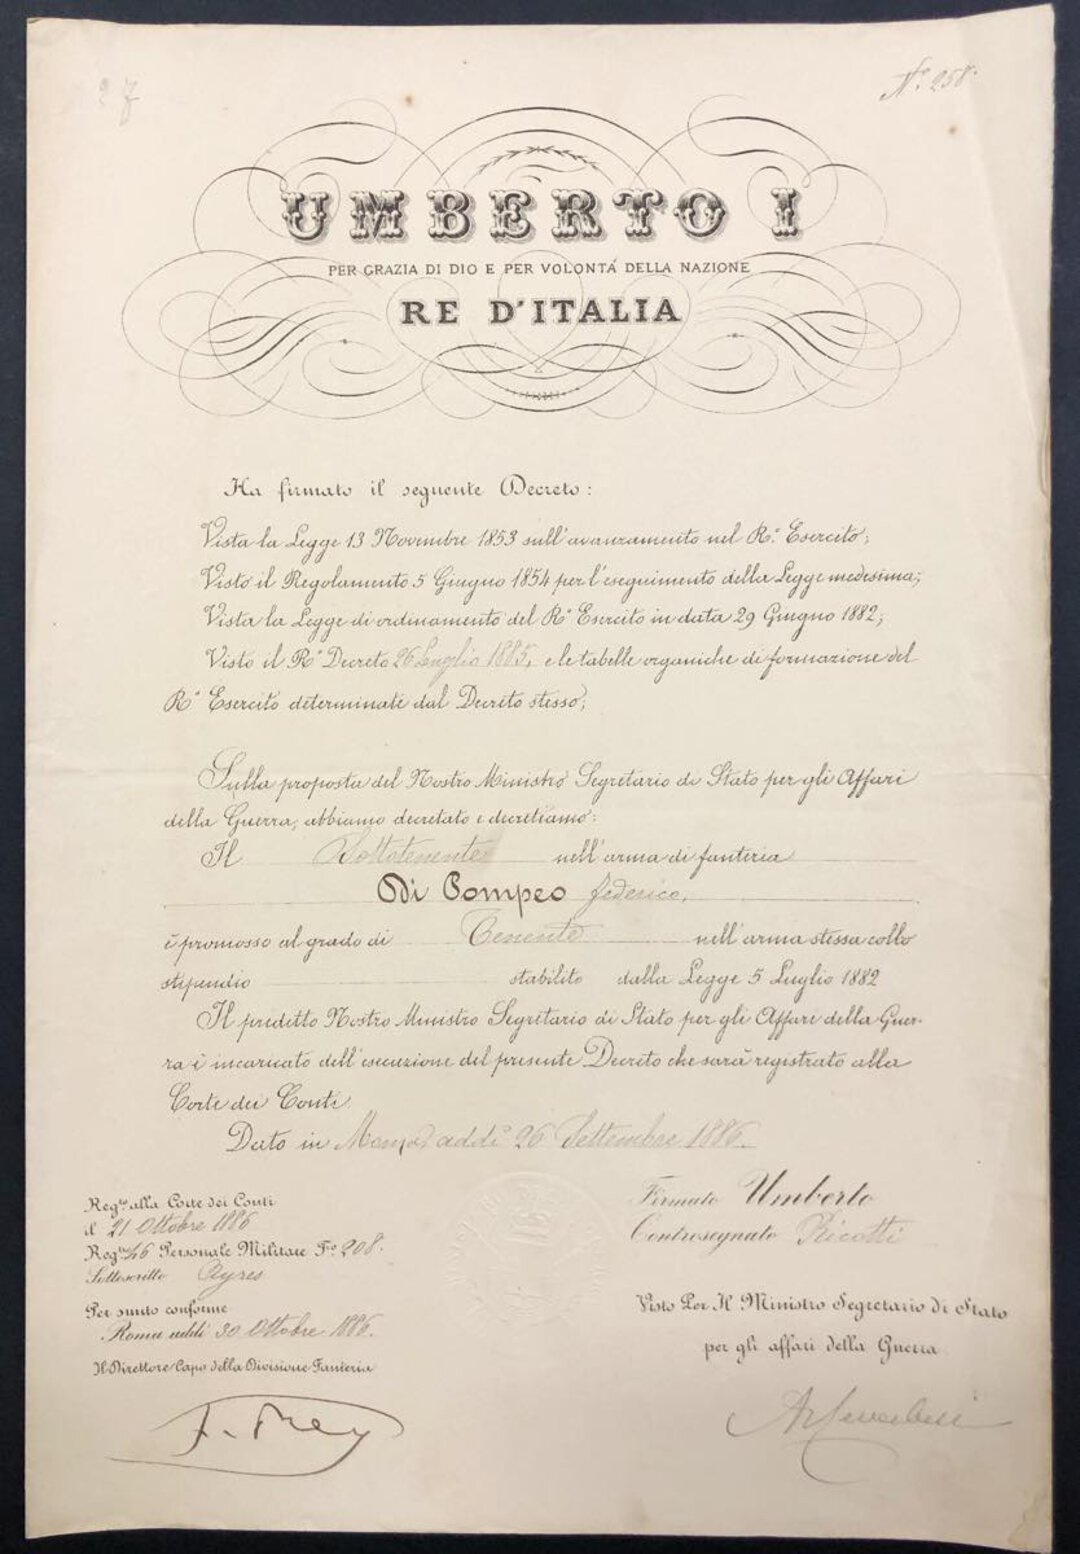 2 7
N.° 258.
UMBERTO I
PER GRAZIA DI DIO E PER VOLONTÁ DELLA NAZIONE
RE D'ITALIA
Ha firmato il seguente Decreto:
Vista la Legge 13 Novembre 1853 sull'avanzamento nel R.° Esercito;
Visto il Regolamento 5 Giugno 1854 per l'eseguimento della Legge medesima;
Vista la Legge di ordinamento del R.° Esercito in data 29 Giugno 1882;
Visto il R.° Decreto 26 Luglio 1885, e le tabelle organiche di formazione del
R.° Esercito determinate dal Decreto stesso;
Sulla proposta del Nostro Ministro Segretario di Stato per gli Affari
della Guerra, abbiamo decretato e decretiamo:
Il Sottotenente nell'arma di fanteria
Di Pompeo Federico,
è promosso al grado di Tenente nell'arma stessa collo
stipendio stabilito dalla Legge 5 Luglio 1882
Il predetto Nostro Ministro Segretario di Stato per gli Affari della Guer-
ra è incaricato dell'esecuzione del presente Decreto che sarà registrato alla
Corte dei Conti.
Dato in Monza addì 26 Settembre 1886.
Reg.to alla Corte dei Conti
il 21 Ottobre 1886
Reg.tro 46 Personale Militare F.° 208.
Sottoscritto Ayres
Per sunto conforme
Roma addì 30 Ottobre 1886.
Il Direttore Capo della Divisione Fanteria
F. Frey
Firmato Umberto
Controsegnato Ricotti
Visto Per Il Ministro Segretario di Stato
per gli affari della Guerra